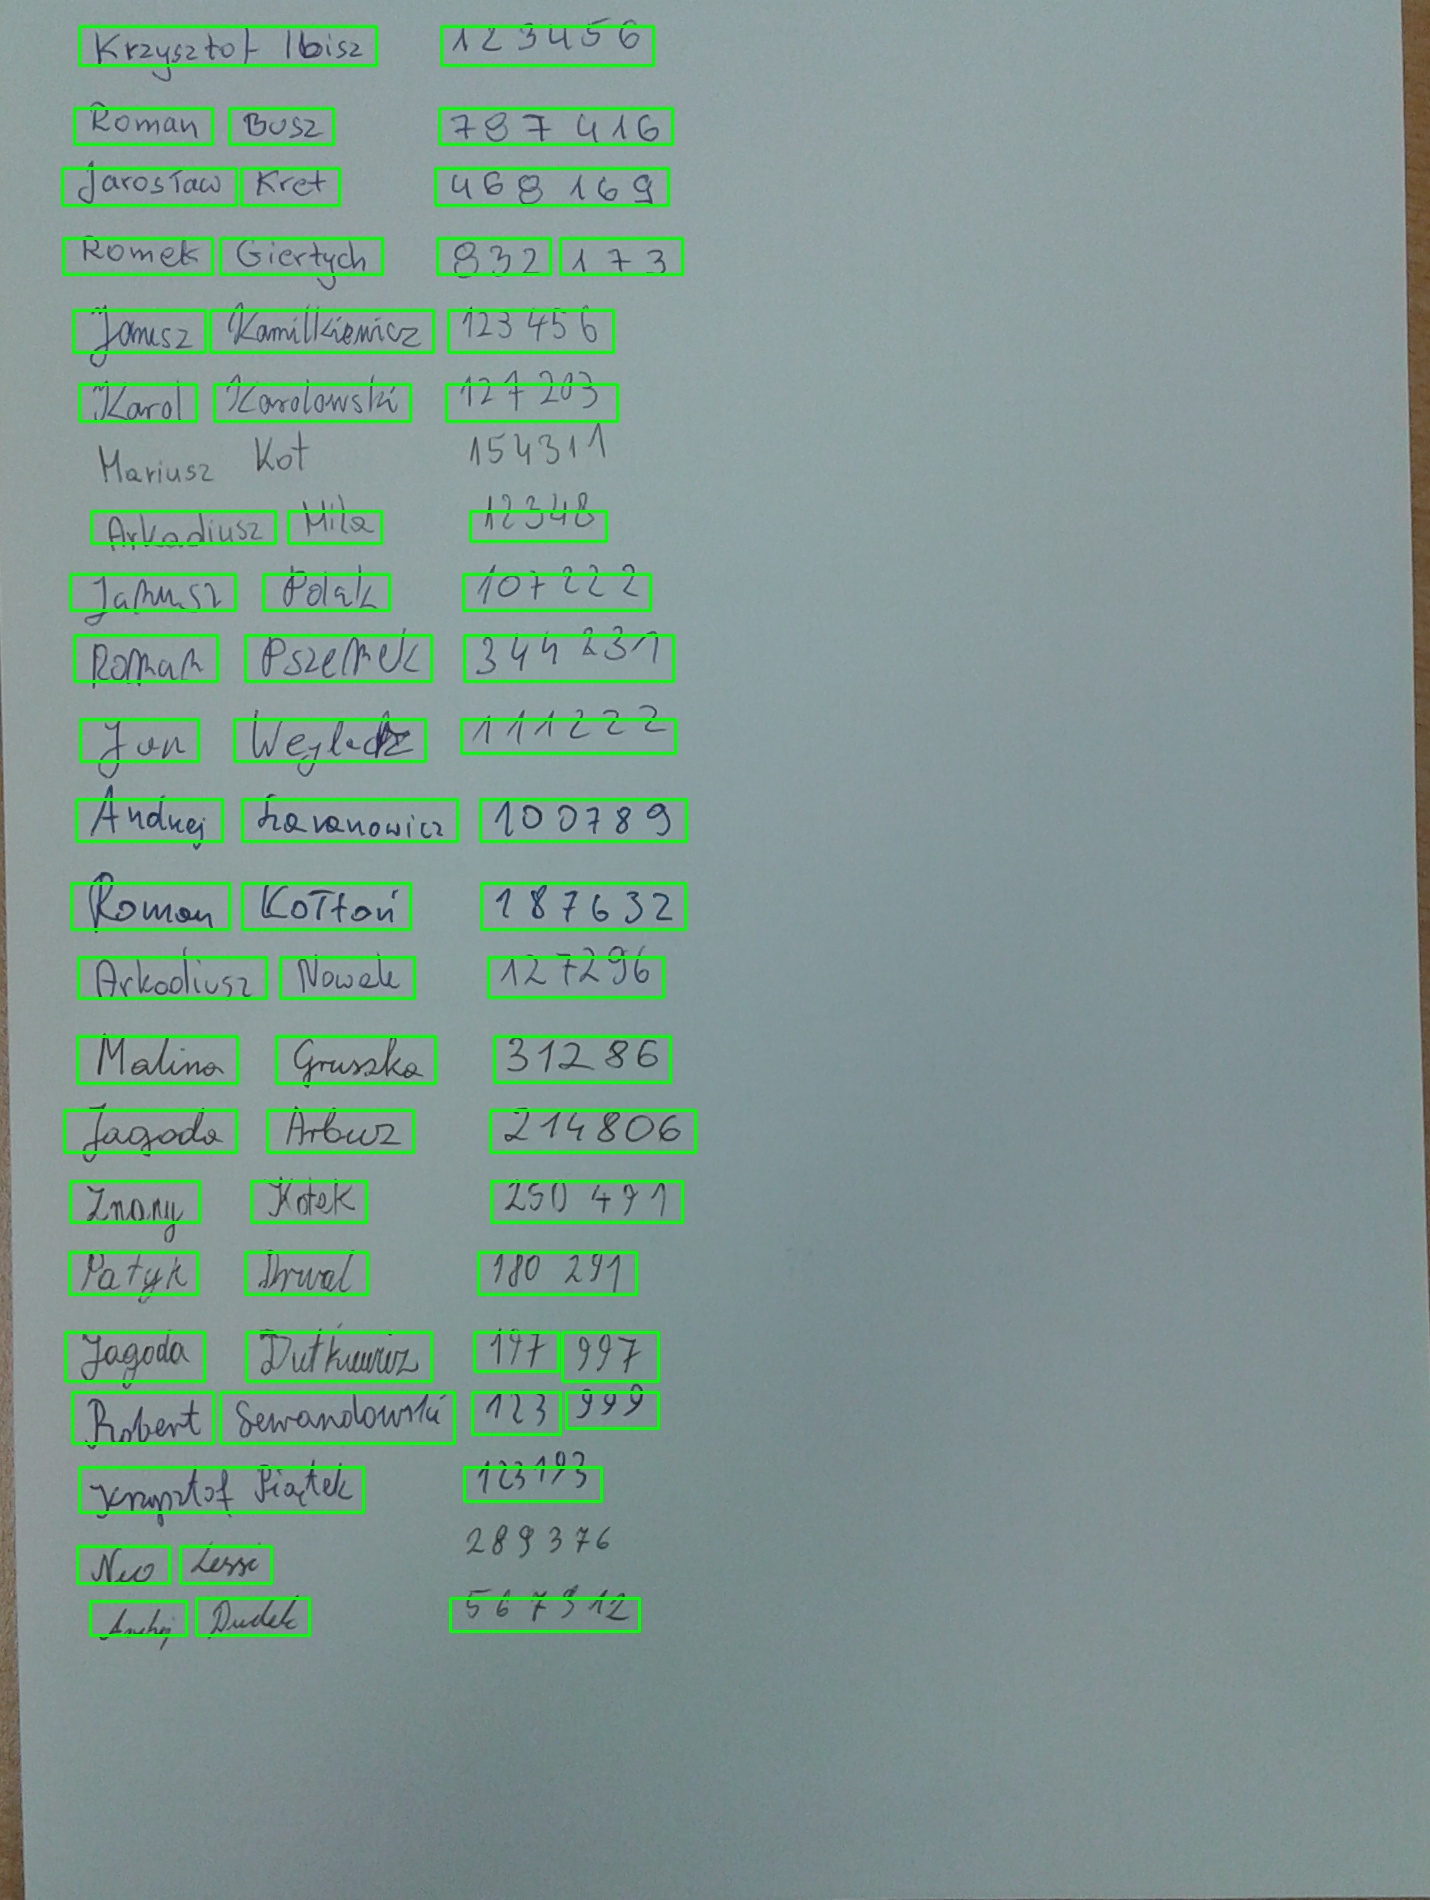 Krzysztof Ibisz 123456
Roman Busz 787 416
Jarosław Kret 468 169
Romek Giertych 832 173
Janusz Kamilkiewicz 123 456
Karol Karolowski 127 203
Mariusz Kot 154311
Arkadiusz Mila 12348
Janusz Polak 107222
Roman Pszemek 344 231
Jan 111222
Andrzej 100789
Roman Kołtoń 187632
Arkadiusz Nowak 127296
Malina Gruszka 31286
Jagoda Arbuz 214806
Znany Kotek 250 491
Patyk Drwal 180 291
Jagoda Dutkiewicz 197 997
Robert Sewandowski 123 999
Krzysztof Piątek 123193
Leo Lessi 289376
Andrzej Dudek 567912